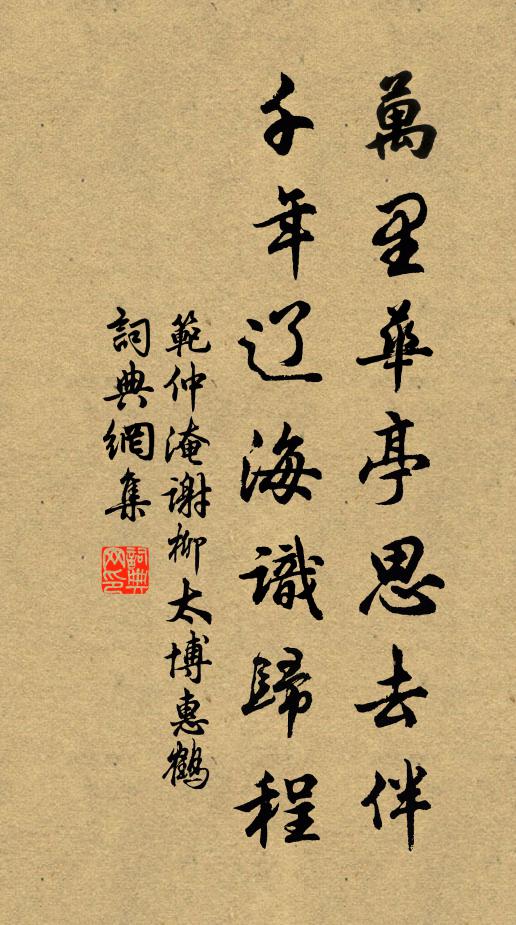 萬里華亭思去伴
千年辽海識歸程
範仲淹謝柳太博惠鶴
詞典網集
詞典网印